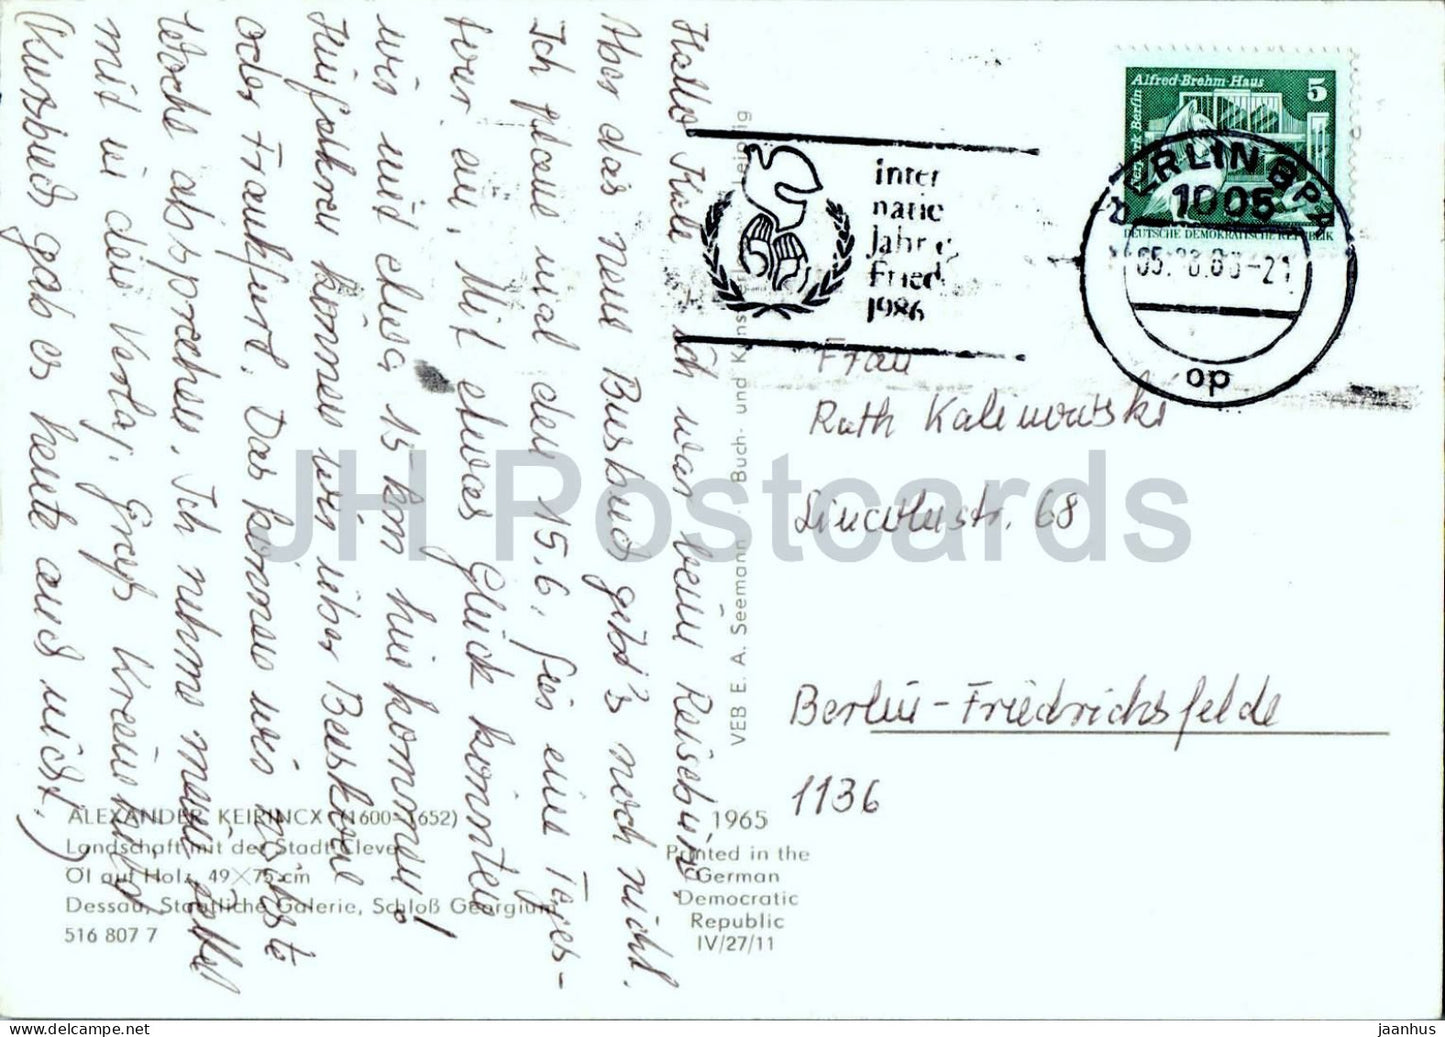 Hallo Kale ich war beim Reisebüro.
Aber das neue Busbuch gibt's noch nicht.
Ich plane mal den 15.6. für eine Tages-
tour ein. Mit etwas Glück könnten
wir mit etwa 15 km hinkommen!
Hinfahren können wir über Beeskow
oder Frankfurt. Das können wir nächste
Woche absprechen. Ich nehme meine
mit in den Verlag. Gruß
(Kursbuch gab es heute auch nicht.)
Alfred-Brehm-Haus
5
Tierpark Berlin
DEUTSCHE DEMOKRATISCHE REPUBLIK
BERLIN BPA
1005
-21
op
inter
natio
Jahr d
Fried
1986
Frau
Ruth Kalinowski
Lincolnstr. 68
Berlin-Friedrichsfelde
1136
VEB E. A. Seemann . Buch- und Kunst Leipzig
ALEXANDER KEIRINCX (1600-1652)
Landschaft mit der Stadt Cleve
Öl auf Holz, 49×75 cm
Dessau, Staatliche Galerie, Schloß Georgium
516 807 7
1965
Printed in the
German
Democratic
Republic
IV/27/11
JH Postcards
jaanhus
www.delcampe.net